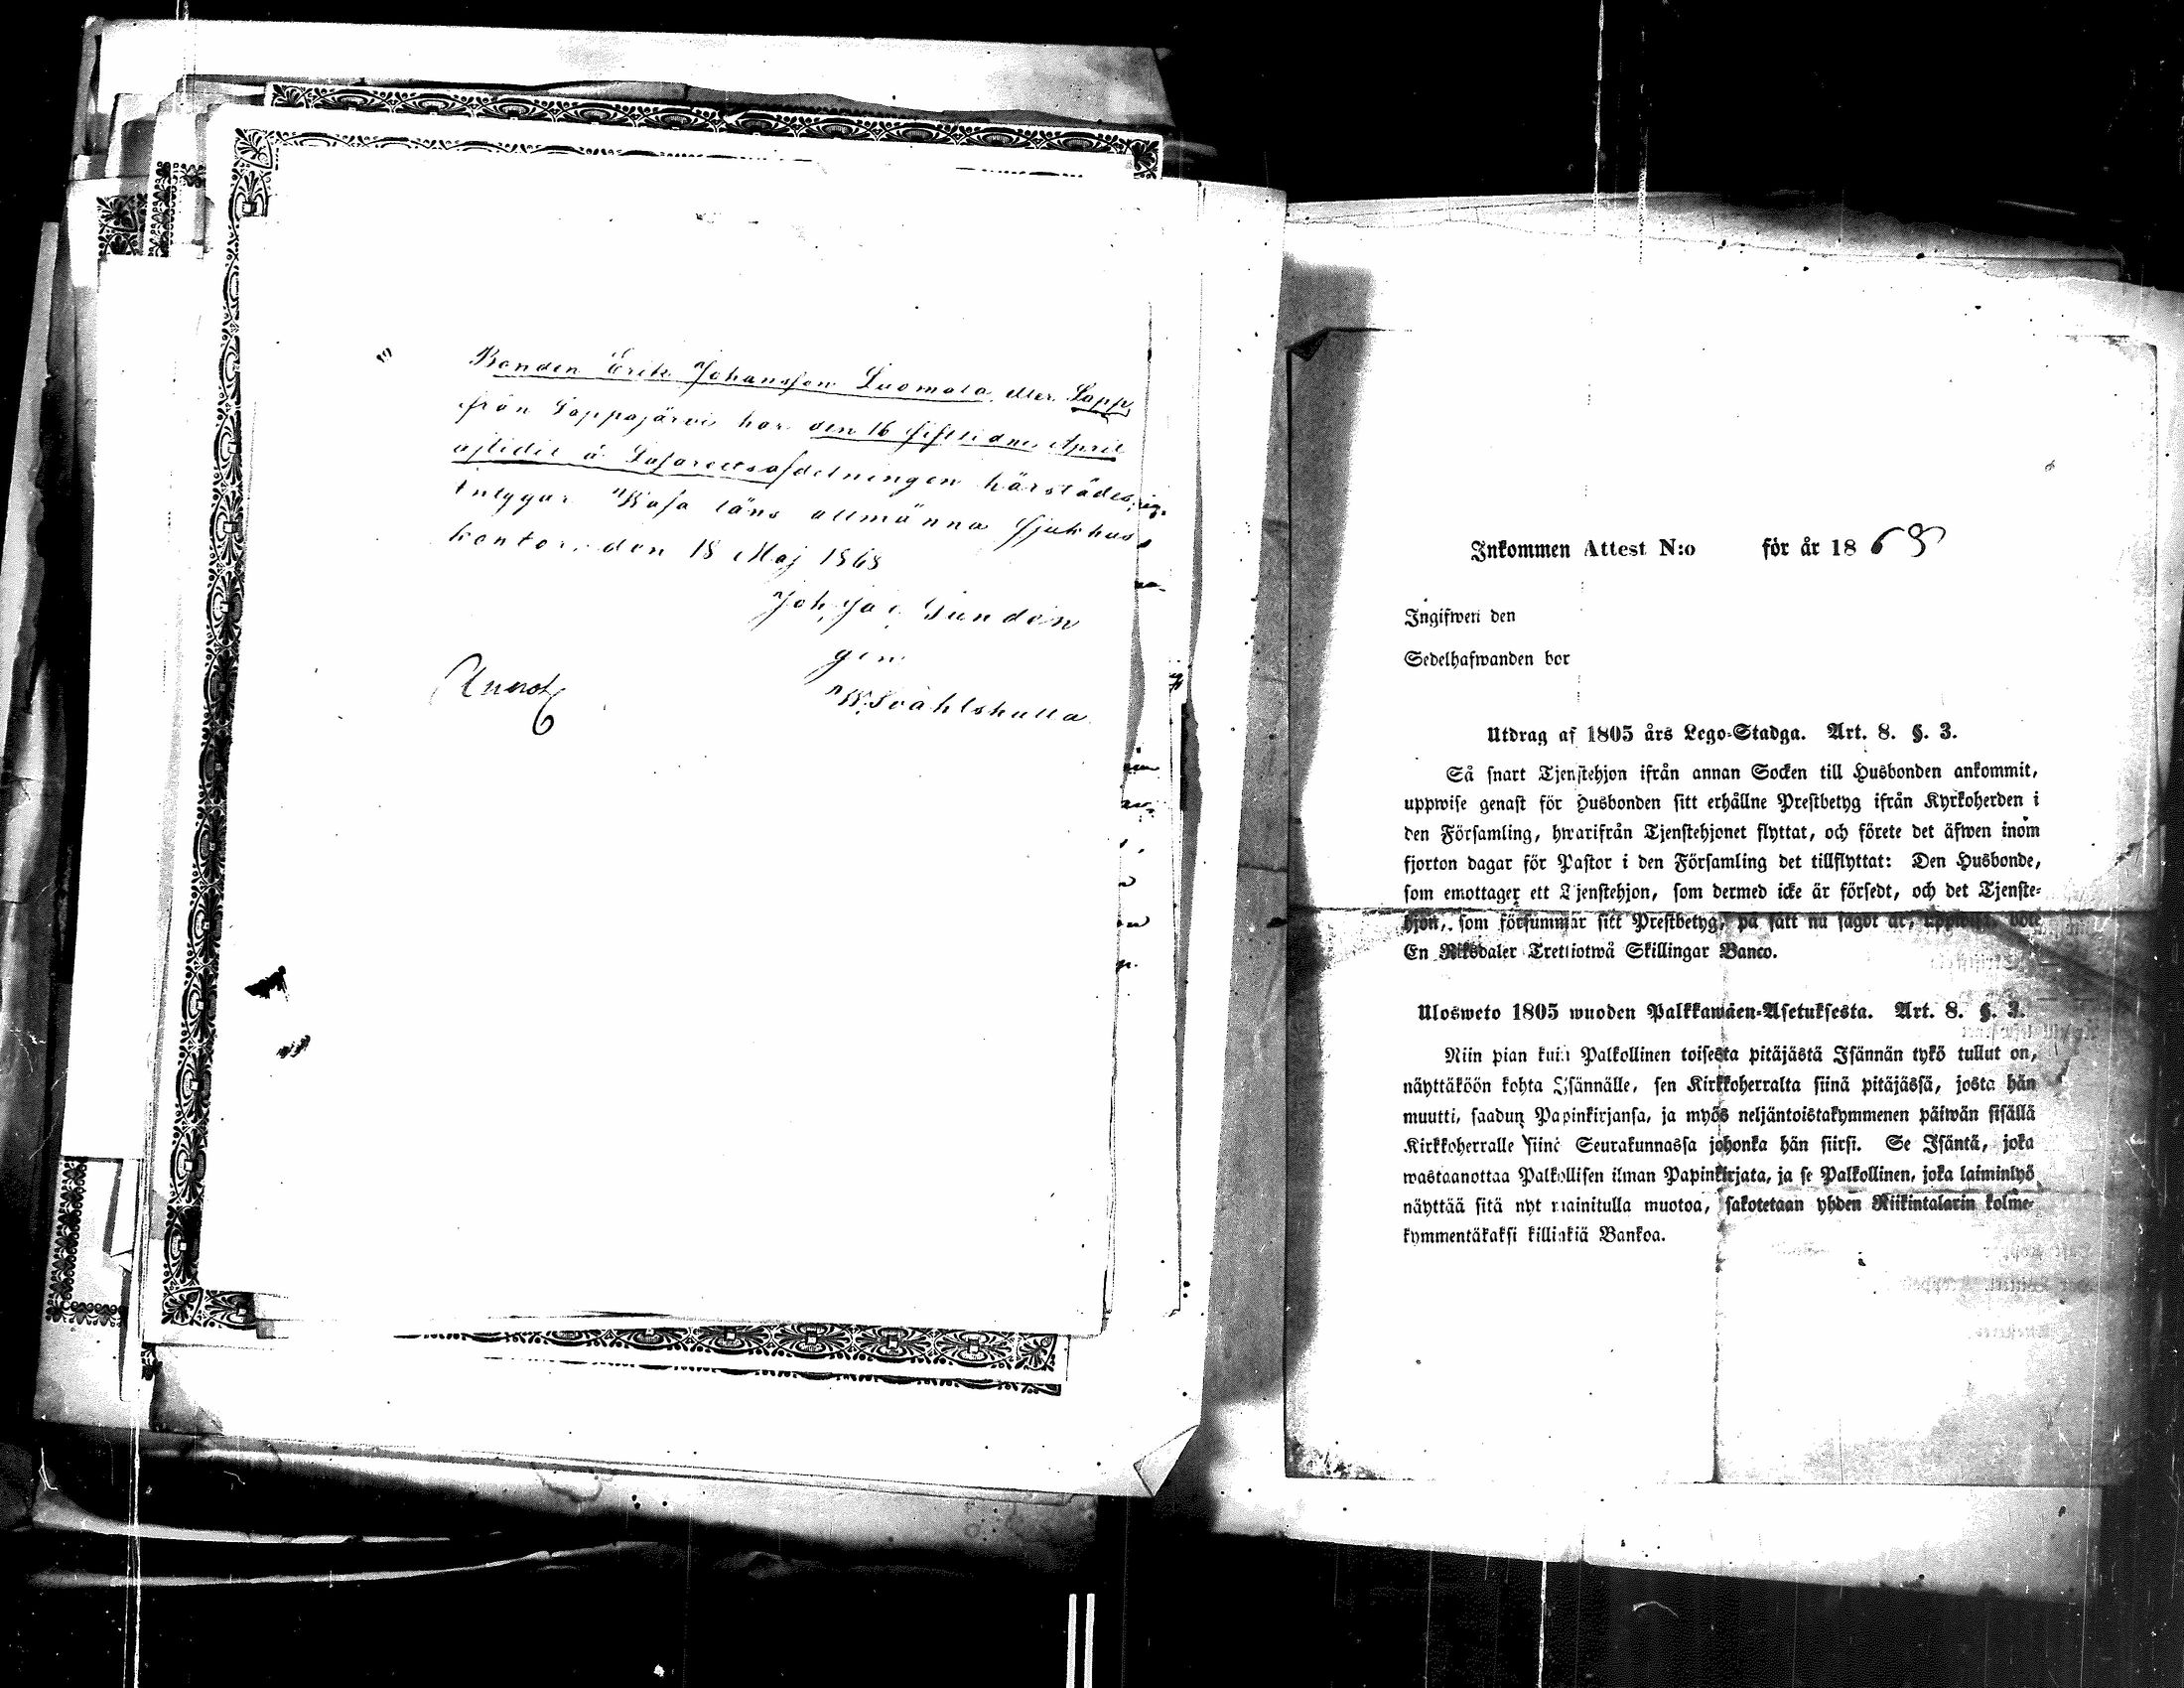 Bonden Erik Johansson Luomala eller Lapp
från Lappajärvi har den 16 sistlidne April
aflidit å Lasarettsafdelningen härstädes,
intygar Wasa läns allmänna sjukhus
kontor, den 18 Maj 1868
Joh. Jac.
gm
Inkommen Attest N:o för år 1868
Ingifwen den
Sedelhafwanden bor
Utdrag af 1805 års Lego-Stadga. Art. 8. §. 3.
Så snart Tjenstehjon ifrån annan Socken till Husbonden ankommit,
uppwise genast för Husbonden sitt erhållne Prestbetyg ifrån Kyrkoherden i
den Församling, hwarifrån Tjenstehjonet flyttat, och förete det äfwen inom
fjorton dagar för Pastor i den Församling det tillflyttat: Den Husbonde,
som emottager ett Tjenstehjon, som dermed icke är försedt, och det Tjenste-
hjon, som försummar sitt Prestbetyg, på sätt nu sagdt är, uppwisa, böte
En Riksdaler Trettiotwå Skillingar Banco.
Ulosweto 1805 wuoden Palkkawäen-Asetuksesta. Art. 8. §. 3.
Niin pian kuin Palkollinen toisesta pitäjästä Isännän tykö tullut on,
näyttäköön kohta Isännälle, sen Kirkkoherralta siinä pitäjässä, josta hän
muutti, saadun Papinkirjansa, ja myös neljäntoistakymmenen päiwän sisällä
Kirkkoherralle siinä Seurakunnassa johonka hän siirsi. Se Isäntä, joka
wastaanottaa Palkollisen ilman Papinkirjata, ja se Palkollinen, joka laiminlyö
näyttää sitä nyt mainitulla muotoa, sakotetaan yhden Riikintalarin kolme-
kymmentäkaksi killinkiä Bankoa.